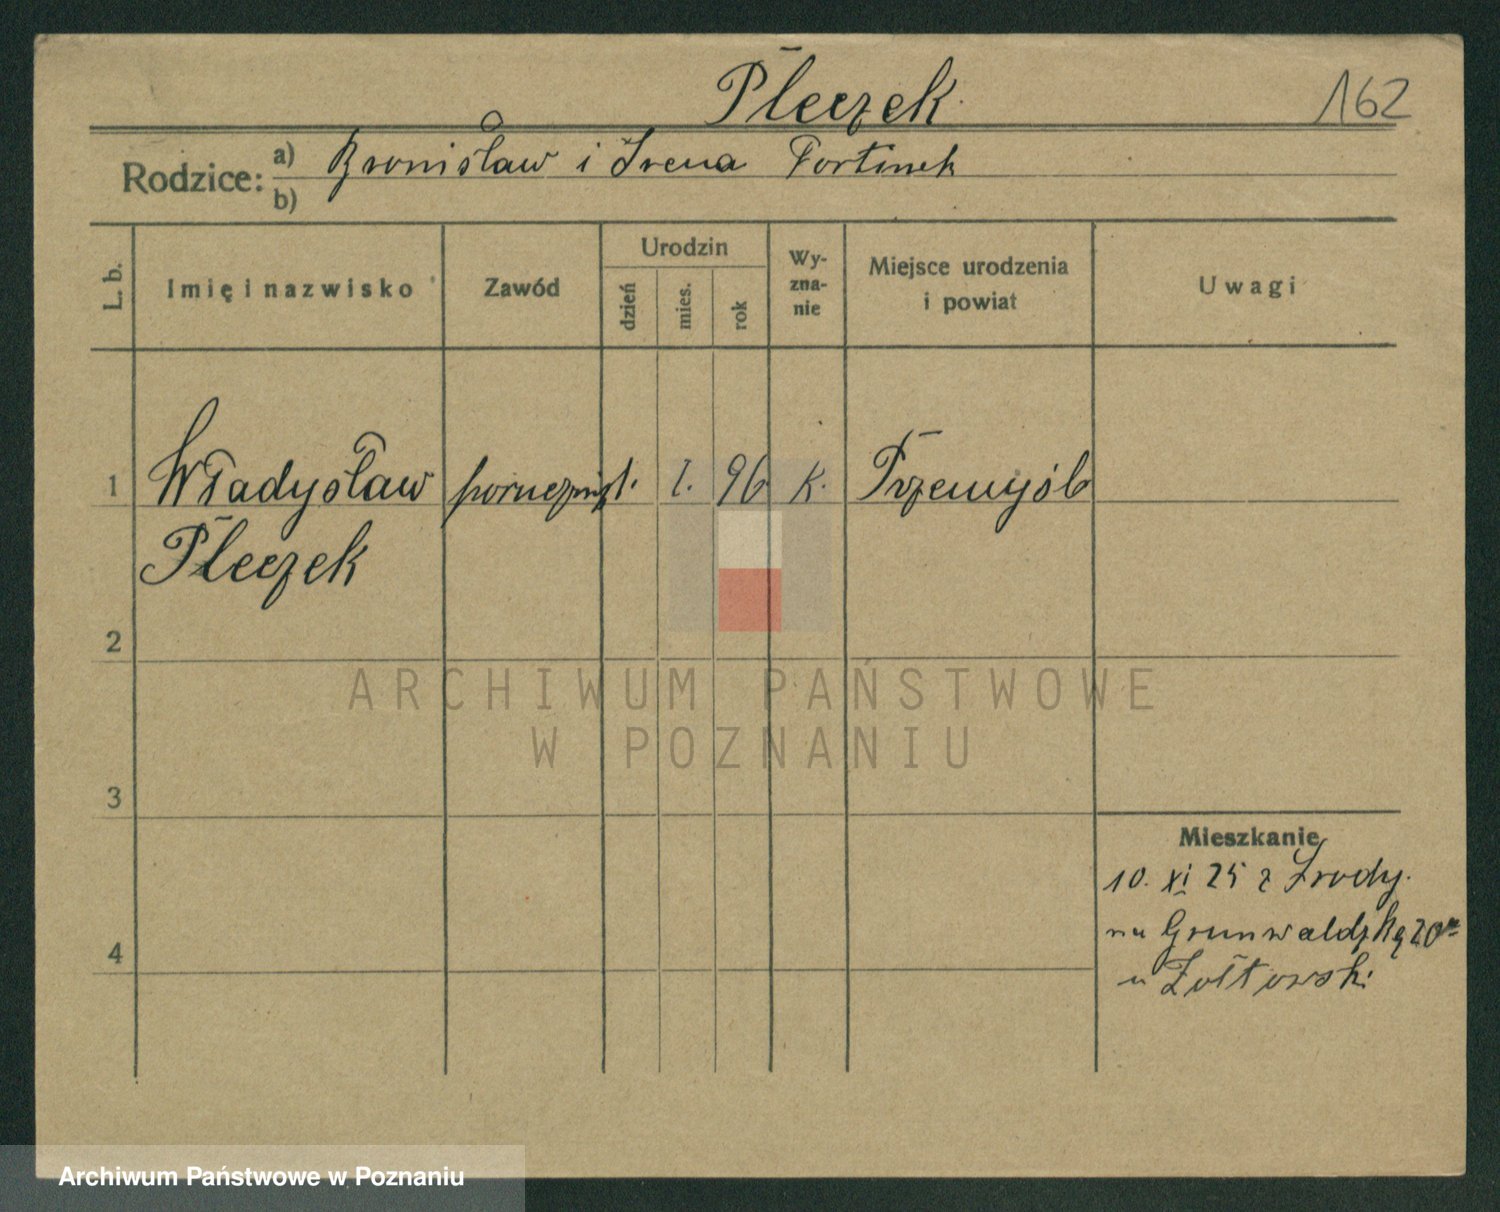 Pleczek
162
Rodzice: a) Bronisław i Irena Fortinek
b)
L. b.
Imię i nazwisko
Zawód
Urodzin
dzień
mies.
rok
Wy-
zna-
nie
Miejsce urodzenia
i powiat
Uwagi
1 Władysław porucznik 1. I. 96 K. Przemyśl
Pleczek
2
3
4
Mieszkanie
10. XI 25 z Środy.
na Grunwaldzką 20
u Żołtowski
ARCHIWUM PAŃSTWOWE
W POZNANIU
Archiwum Państwowe w Poznaniu